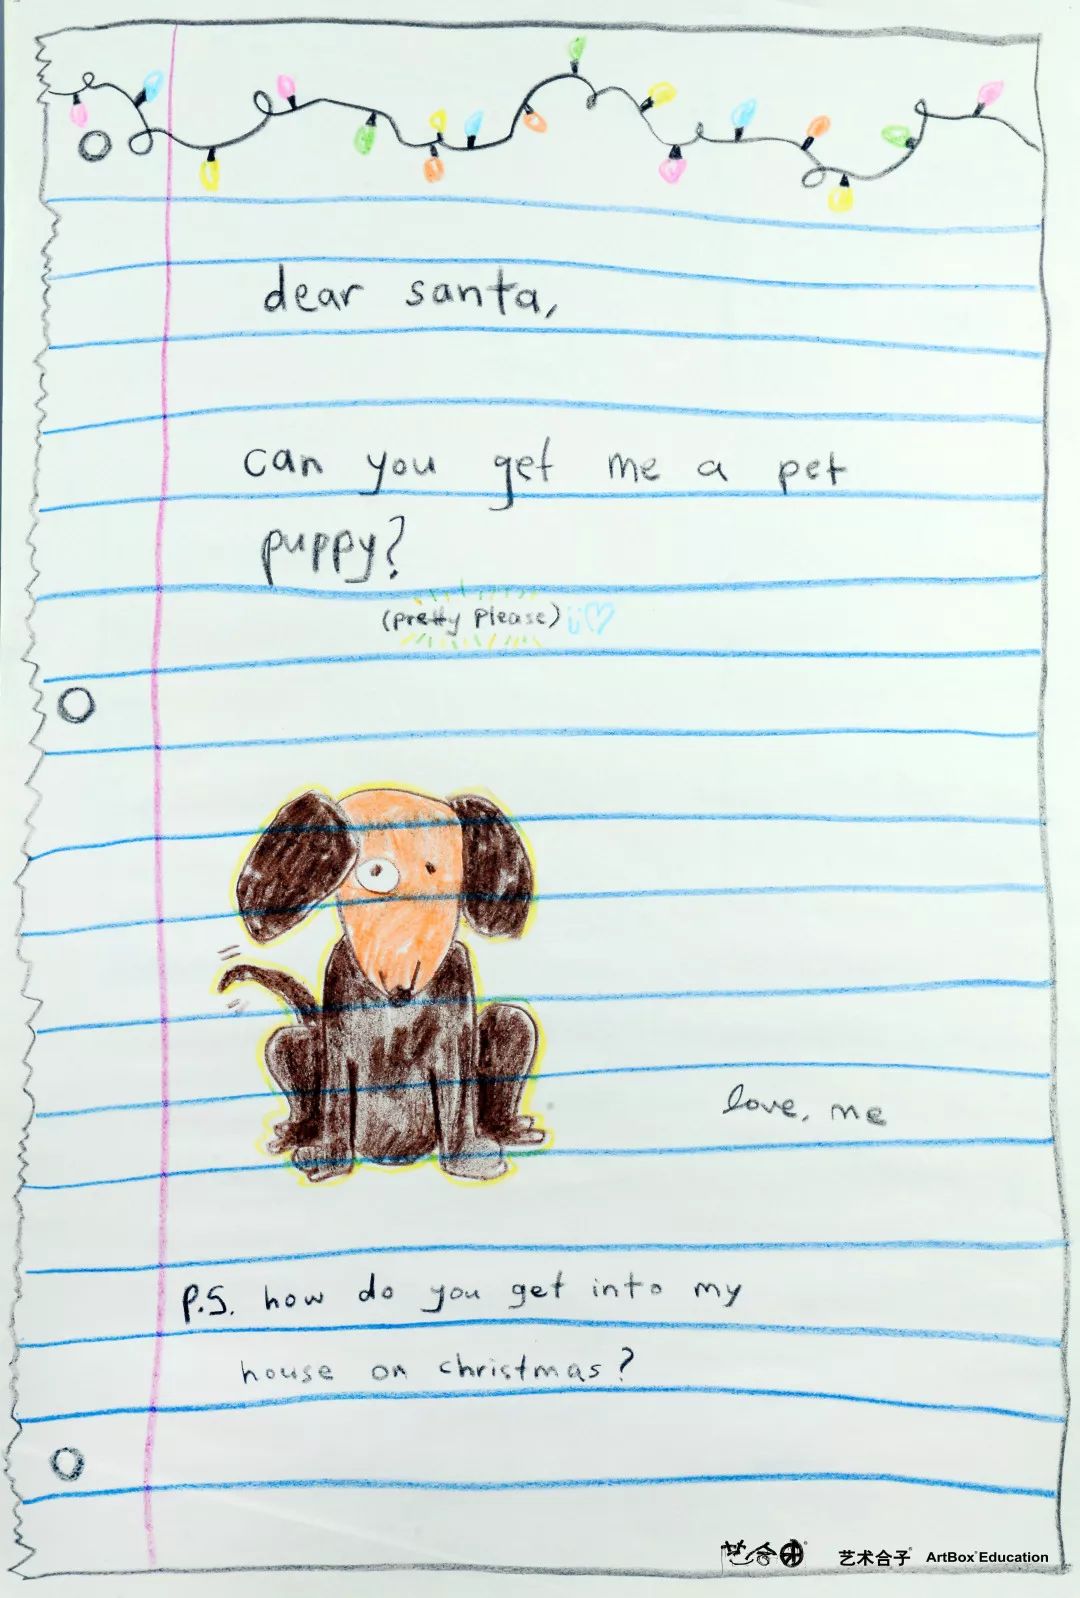 dear santa,
can you get me a pet
puppy?
(pretty please)
love, me
p.s. how do you get into my
house on christmas?
艺术合子 ArtBox Education